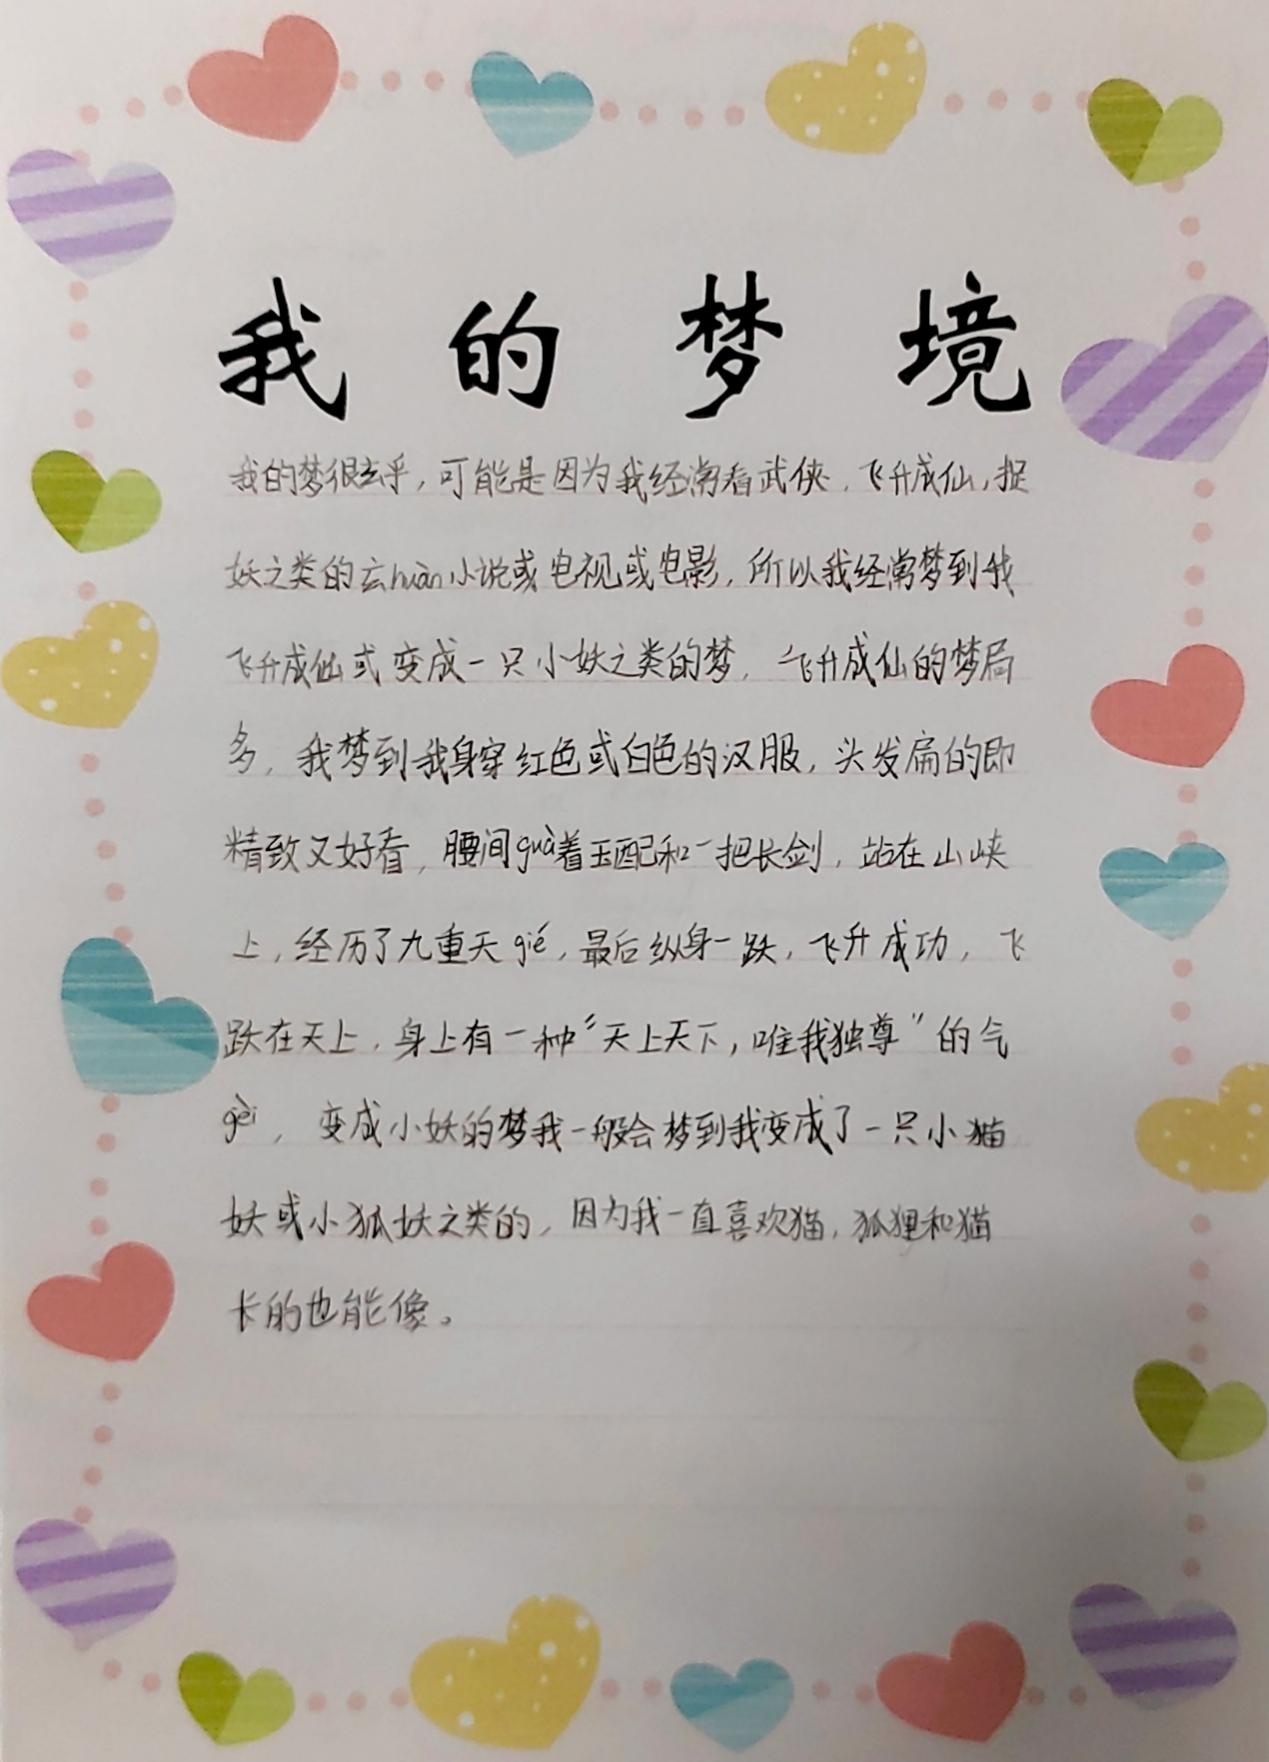 我的梦境
我的梦很玄乎，可能是因为我经常看武侠，飞升成仙，捉
妖之类的玄huàn小说或电视或电影，所以我经常梦到我
飞升成仙或变成一只小妖之类的梦，飞升成仙的梦居
多，我梦到我身穿红色或白色的汉服，头发扁的即
精致又好看，腰间guà着玉配和一把长剑，站在山峡
上，经历了九重天gié，最后纵身一跃，飞升成功，飞
跃在天上，身上有一种“天上天下，唯我独尊”的气
gèi，变成小妖的梦我一般会梦到我变成了一只小猫
妖或小狐妖之类的，因为我一直喜欢猫，狐狸和猫
长的也能像。